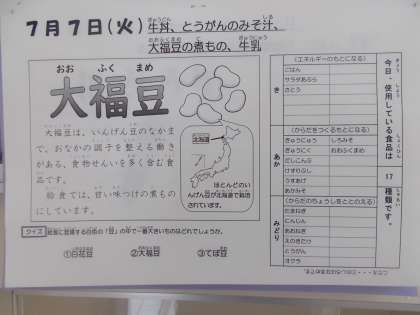 7月7日(火)
牛丼、とうがんのみそ汁、
大福豆の煮もの、牛乳
おお ふく まめ
大福豆
大福豆は、いんげん豆のなかま
で、おなかの調子を整える働き
がある、食物せんいを多く含む食
品です。
給食では、甘い味つけの煮もの
にしています。
北海道
ほとんどのい
んげん豆が北海道で栽培
されています。
クイズ 給食に登場する白色の「豆」の中で一番大きいものはどれでしょうか。
①白花豆 ②大福豆 ③てぼ豆
今日、使用している食品は 17 種類です。
き
(エネルギーのもとになる)
ごはん
サラダあぶら
さとう
あか
(からだをつくるもとになる)
ぎゅうにく しろみそ
ぎゅうにゅう おおふくまめ
だしこんぶ
けずりぶし
うすあげ
あかみそ
みどり
(からだのちょうしをととのえる)
たまねぎ
にんじん
あおねぎ
えのきたけ
とうがん